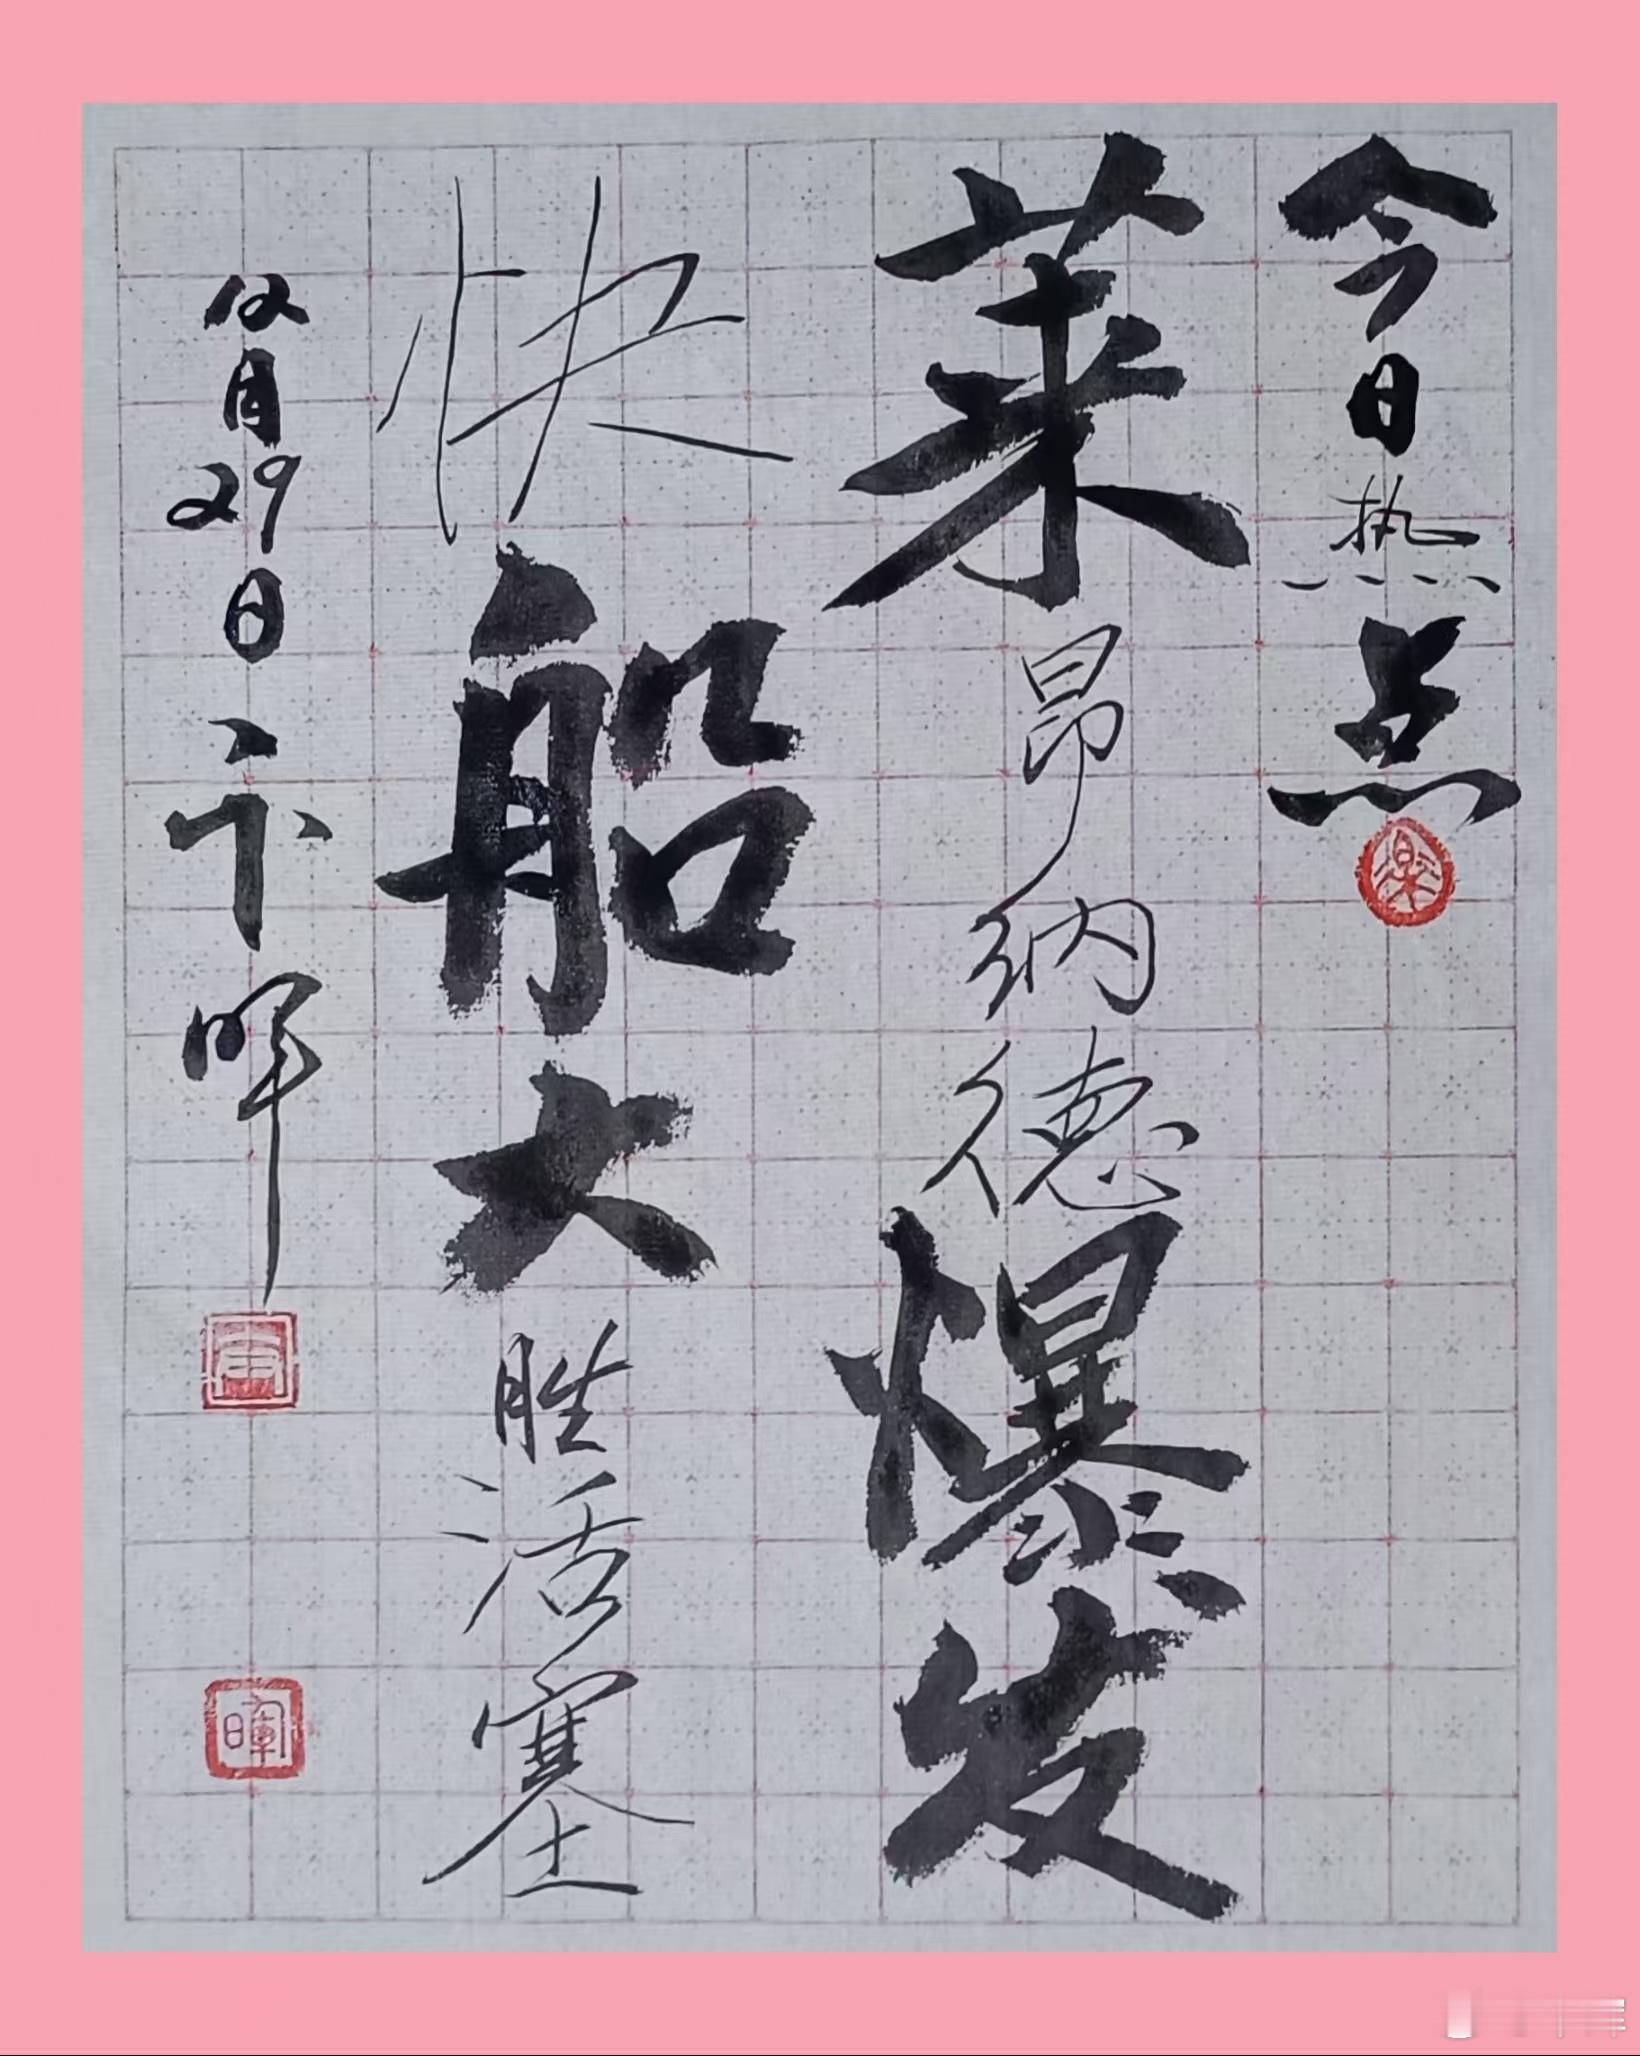 今日热点
莱昂纳德爆发
快船大胜活塞
12月29日卞晖
暉